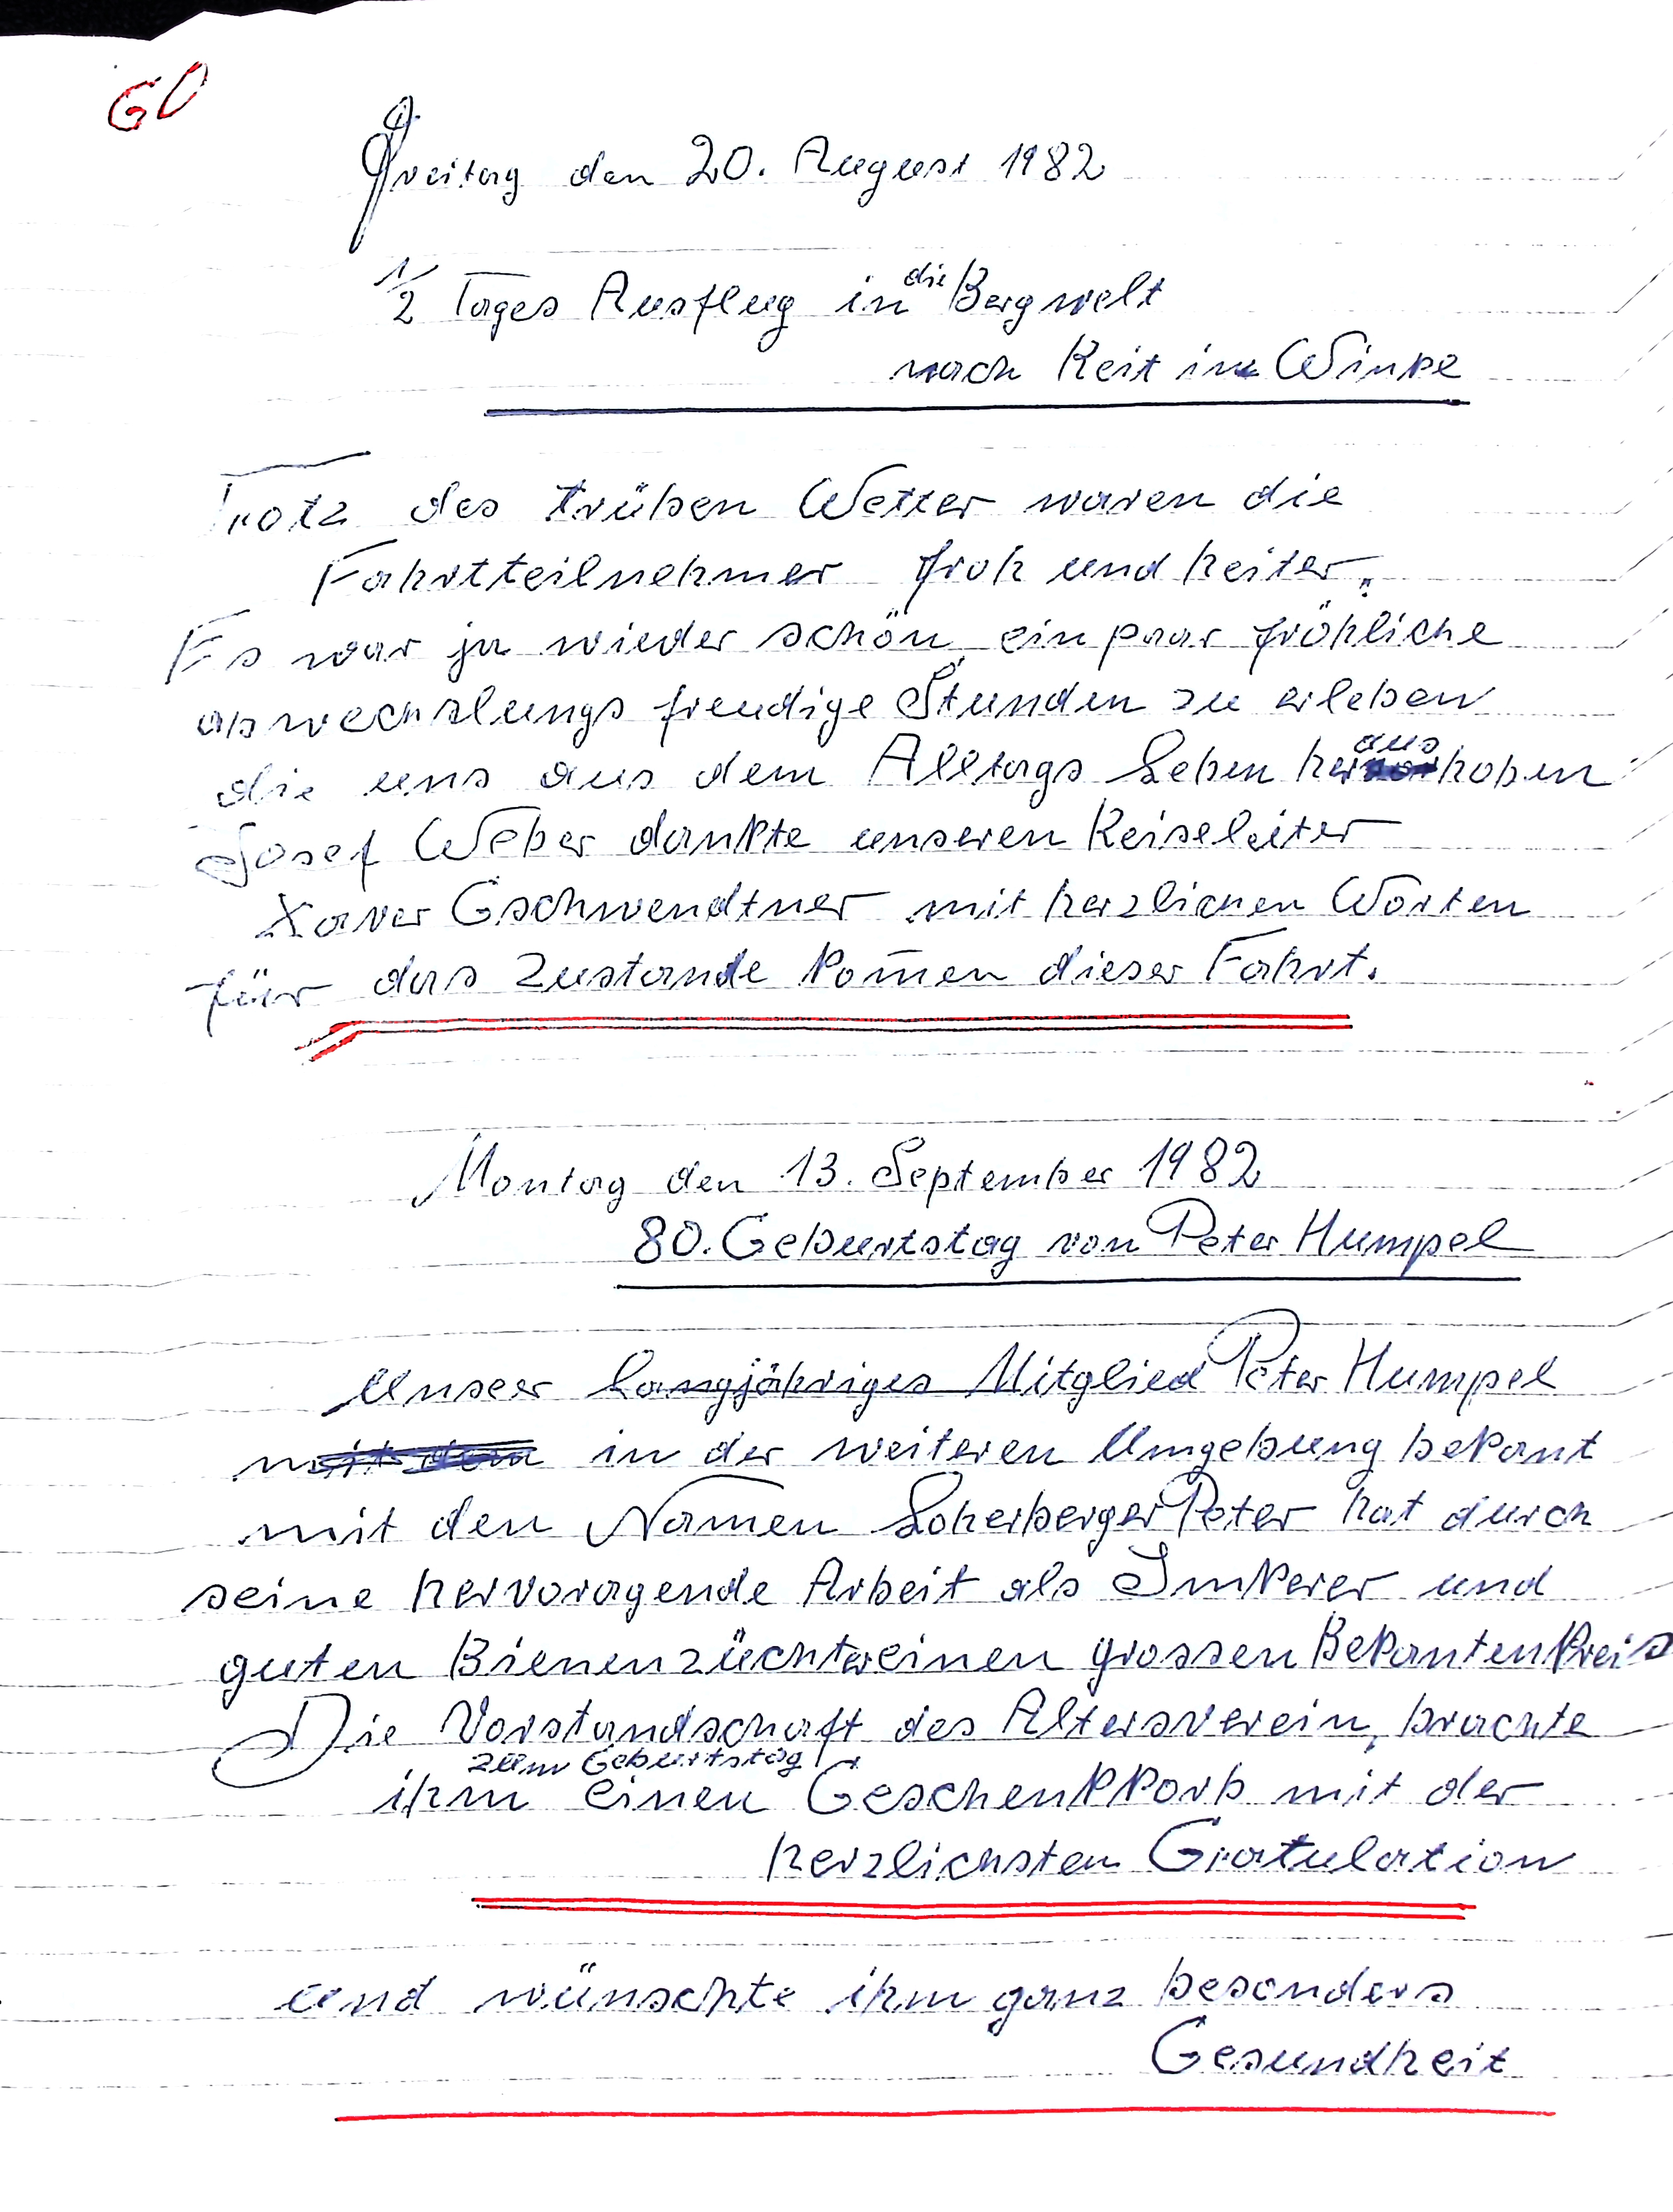 60
Freitag den 20. August 1982
1/2 Tages Ausflug in die Bergwelt
nach Reit im Winkl
Trotz des trüben Wetter waren die
Fahrtteilnehmer froh und heiter.
Es war ja wieder schön, ein paar fröhliche
abwechslungs freudige Stunden zu erleben
die uns aus dem Alltags Leben heraushoben
Josef Weber dankte unseren Reiseleiter
Xaver Gschwendtner mit herzlichen Worten
für das Zustande kom̄en dieser Fahrt.
Montag den 13. September 1982
80. Geburtstag von Peter Humpel
Unser langjähriges Mitglied Peter Humpel
mit dem in der weiteren Umgebung bekant
mit den Namen Loherberger Peter hat durch
seine hervoragende Arbeit als Imkerer und
guten Bienenzüchter einen grossen Bekantenkreis
Die Vorstandschaft des Altersverein, brachte
ihm zum Geburtstag einen Geschenkkorb mit der
herzlichsten Gratulation
und wünschte ihm ganz besonders
Gesundheit